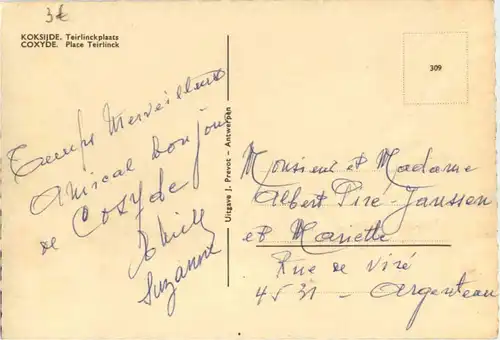 3€
KOKSIJDE. Teirlinckplaats
COXYDE. Place Teirlinck
309
Temps Merveilleux
amical bonjour
de Coxyde
Suzanne
Uitgave J. Prevot - Antwerpen
Monsieur et Madame
Albert Piré-Janssen
et Mariette
Rue de Visé
4531 - Argenteau